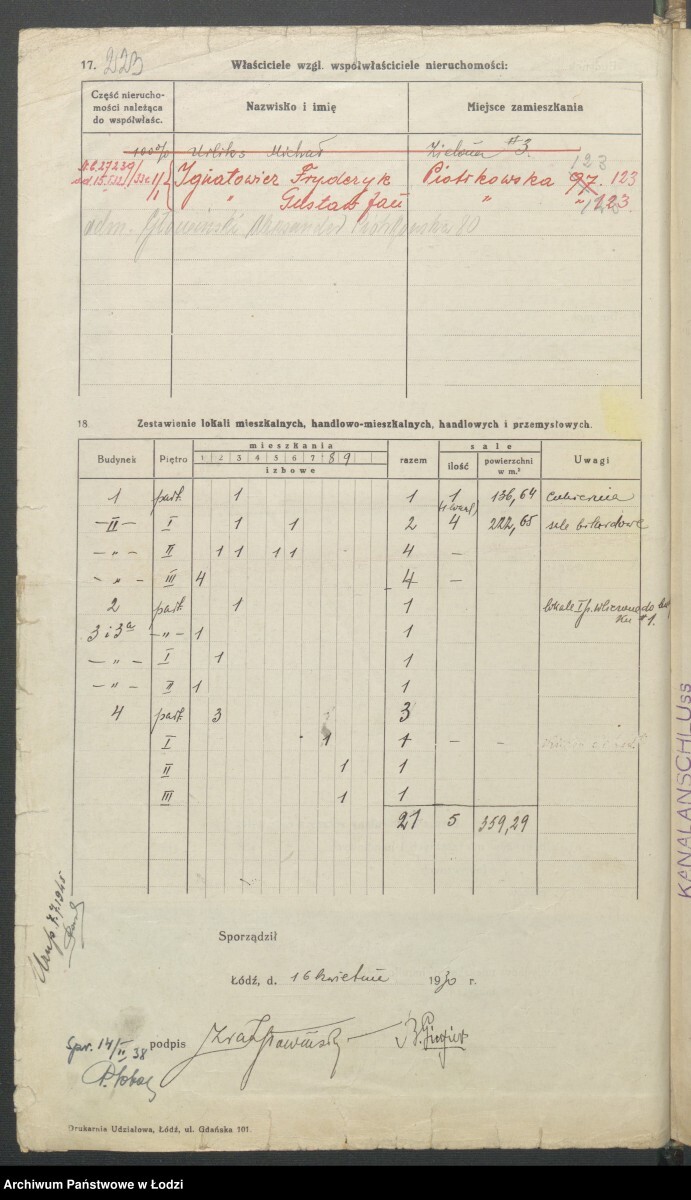 17. 223 Właściciele wzgl. współwłaściciele nieruchomości:
Część nierucho-
mości należąca
do współwłaśc.
Nazwisko i imię
Miejsce zamieszkania
100% Michał Zielona #3.
123
Ignatowicz Fryderyk Piotrkowska 97. 123
" Gustaw Jan " 123.
adm. Głowiński Aleksander Piotrkowska
18. Zestawienie lokali mieszkalnych, handlowo-mieszkalnych, handlowych i przemysłowych.
Budynek Piętro mieszkania razem sale Uwagi
1 2 3 4 5 6 7 8 9
izbowe
ilość powierzchni
w m.²
1 part. 1 1 1 136,64 cukiernia
II I 1 1 2 4 222,65 sale bilardowe
" II 1 1 1 1 4 –
" III 4 4 –
2 part. 1 1 lokale I p. wliczono do
#1.
3 i 3a " 1 1
" I 1 1
" II 1 1
4 part. 3 3
I 1 1 – –
II 1 1
III 1 1
21 5 359,29
Sporządził
Łódź, d. 16 kwietnia 1930 r.
Spr. 14/II 38
podpis
Drukarnia Udziałowa, Łódź, ul. Gdańska 101.
KANALANSCHLUSS
Archiwum Państwowe w Łodzi